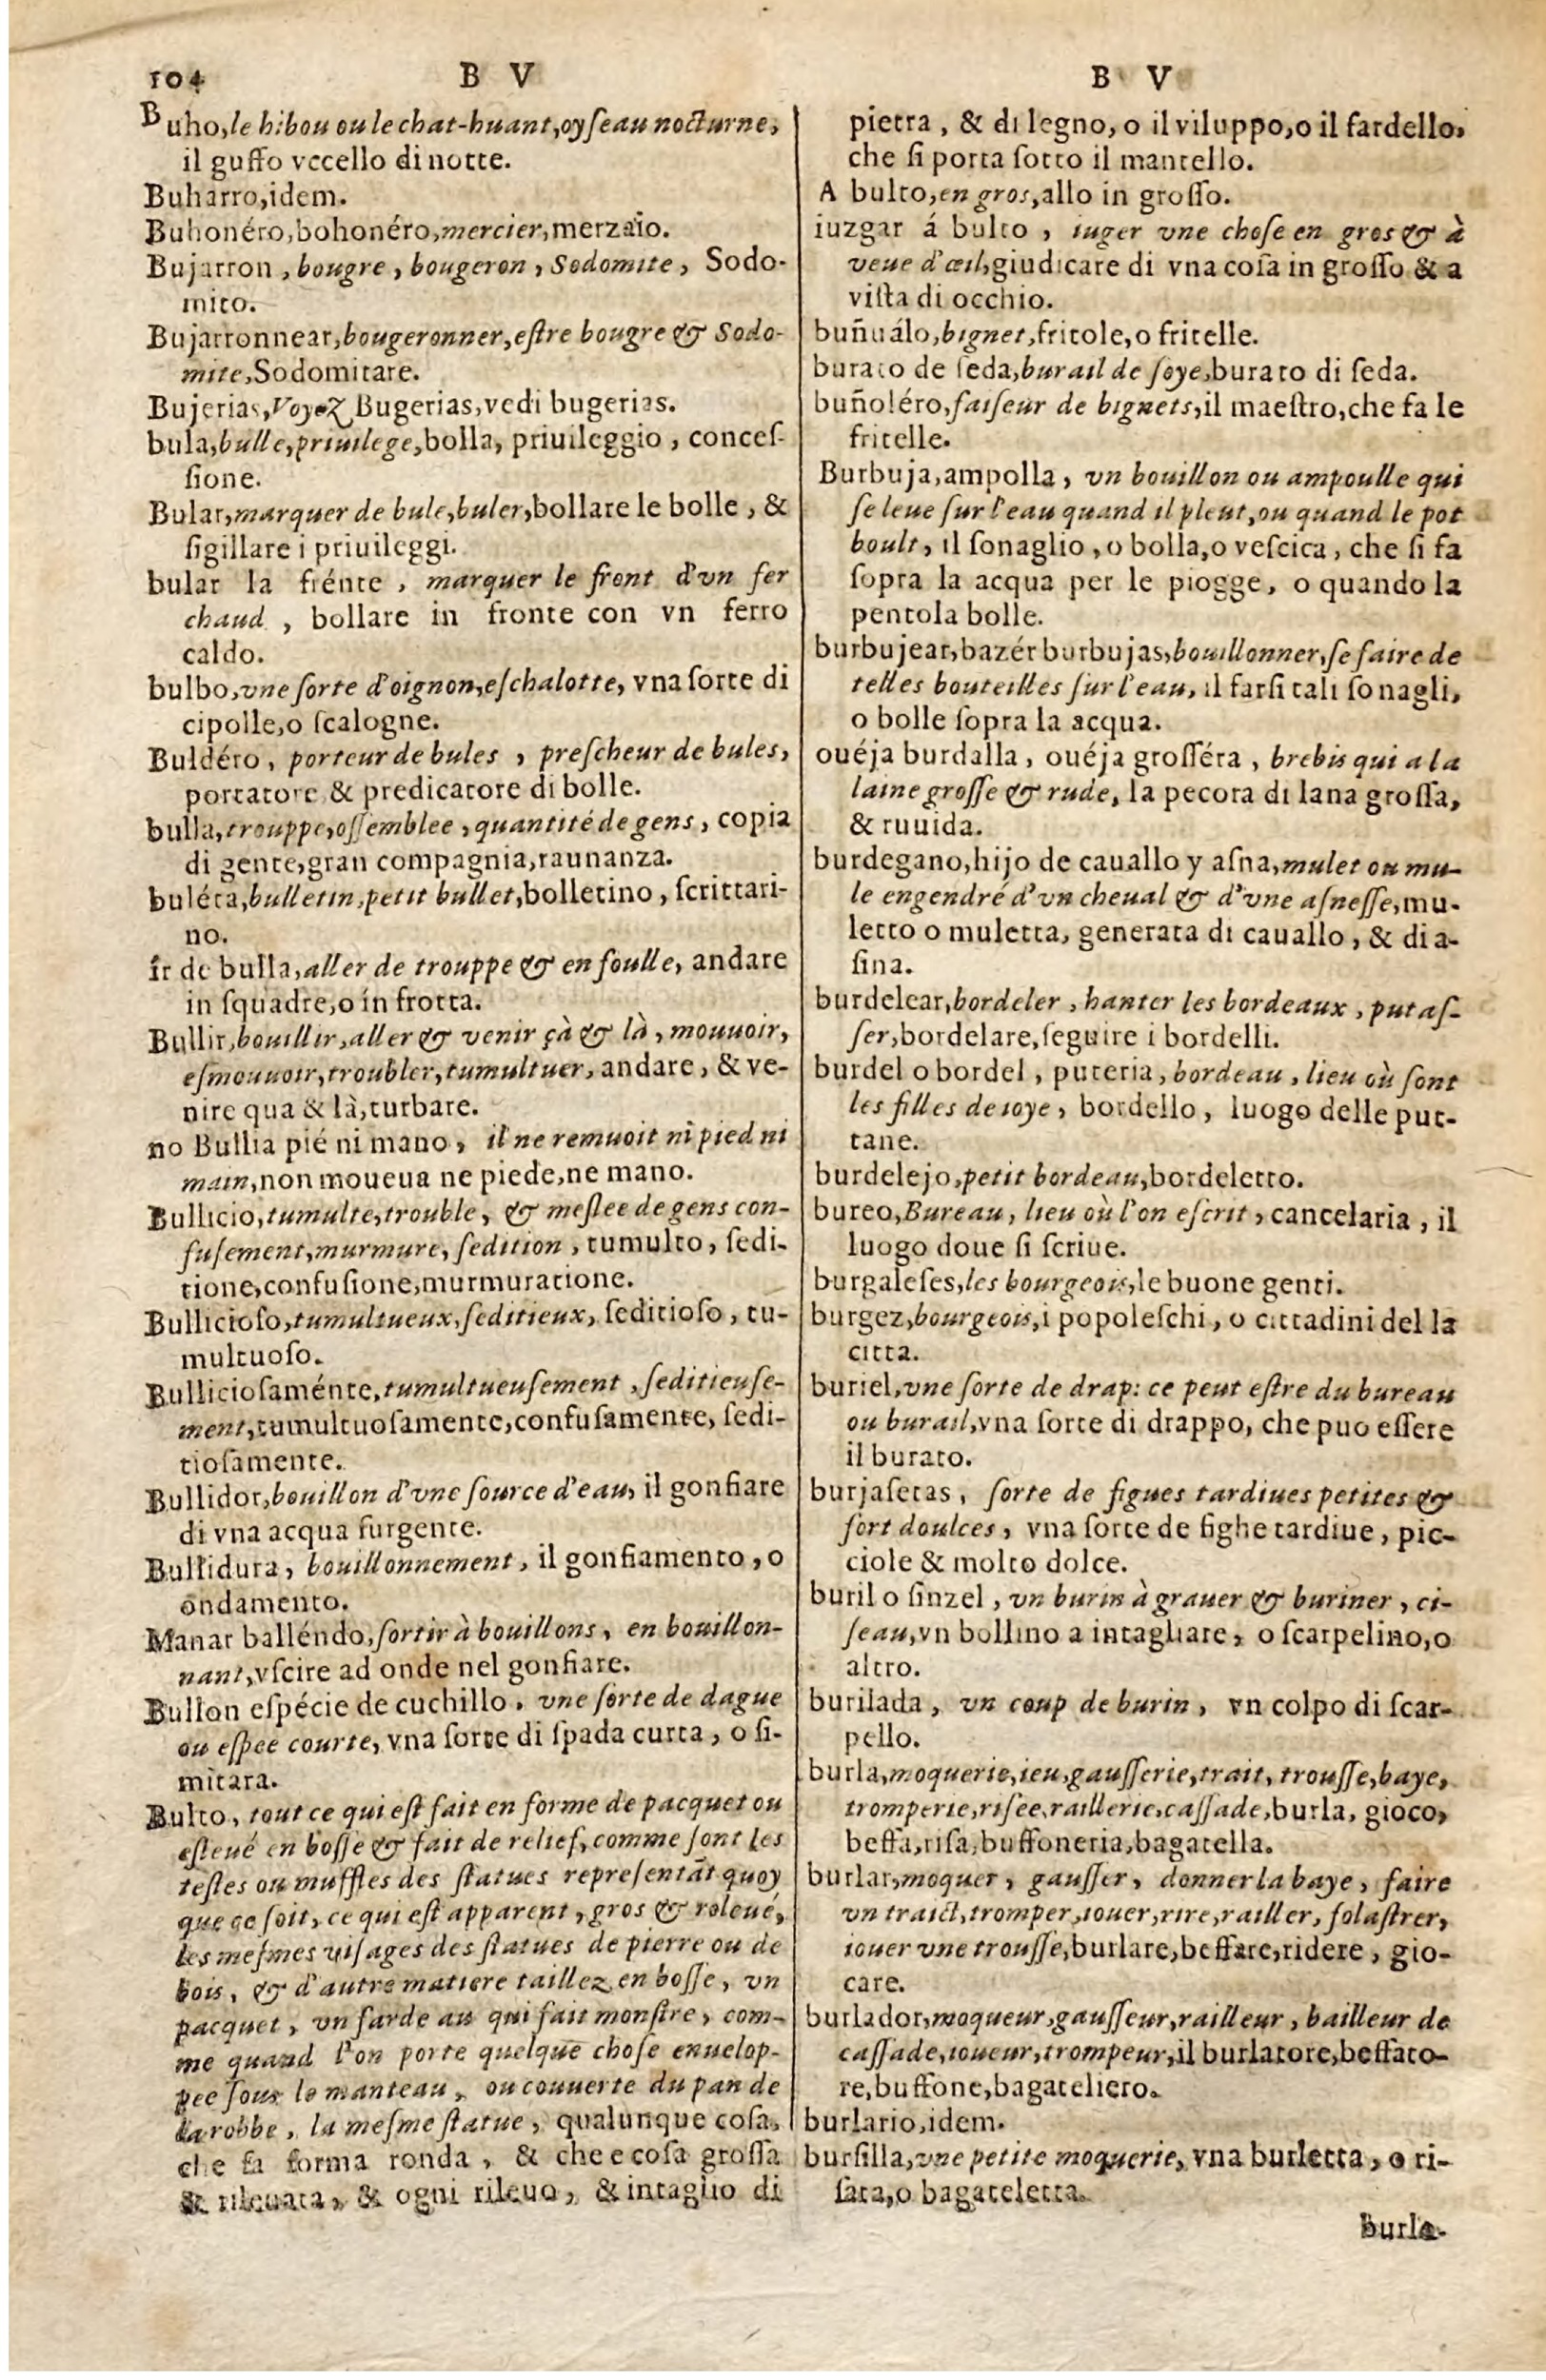 104 B V
Buho,le hibou ou le chat-huant,oyſeau nocturne,
il guffo vccello di notte.
Buharro,idem.
Buhonéro,bohonéro,mercier,merzaïo.
Bujarron , bougre , bougeron , Sodomite, Sodo-
mito.
Bujarronnear,bougeronner,eſtre bougre & Sodo-
mite,Sodomitare.
Bujerias,Voyez Bugerias,vedi bugerias.
bula,bulle,priuilege,bolla, priuileggio , conceſ-
ſione.
Bular,marquer de bule,buler,bollare le bolle , &
ſigillare i priuileggi.
bular la frénte , marquer le front d'vn fer
chaud , bollare in fronte con vn ferro
caldo.
bulbo,vne ſorte d'oignon,eſchalotte, vna ſorte di
cipolle,o ſcalogne.
Buldéro , porteur de bules , preſcheur de bules,
portatore & predicatore di bolle.
bulla,trouppe,aſſemblee , quantité de gens , copia
di gente,gran compagnia,raunanza.
buléta,bulletin,petit bullet,bolletino , ſcrittari-
no.
ír de bulla,aller de trouppe & en foulle, andare
in ſquadre,o in frotta.
Bullir,bouillir,aller & venir çà & là , mouuoir,
eſmouuoir,troubler,tumultuer, andare , & ve-
nire qua & là,turbare.
no Bullia pié ni mano , il ne remuoit ni pied ni
main,non moueua ne piede,ne mano.
Bullicio,tumulte,trouble, & meſlee de gens con-
fuſement,murmure, ſedition , tumulto , ſedi-
tione,confuſione,murmuratione.
Bullicioſo,tumultueux,ſeditieux, ſeditioſo , tu-
multuoſo.
Bullicioſaménte,tumultueuſement , ſeditieuſe-
ment,tumultuoſamente,confuſamente, ſedi-
tioſamente.
Bullidor,bouillon d'vne ſource d'eau, il gonfiare
di vna acqua ſurgente.
Bullidura, bouillonnement , il gonfiamento , o
ondamento.
Manar balléndo,ſortir à bouillons, en bouillon-
nant,vſcire ad onde nel gonfiare.
Bullon eſpécie de cuchillo , vne ſorte de dague
ou eſpee courte, vna ſorte di ſpada curta , o ſi-
mitara.
Bulto, tout ce qui eſt fait en forme de pacquet ou
eſleué en boſſe & fait de relief, comme ſont les
teſtes ou muffles des ſtatues repreſentãt quoy
que ce ſoit, ce qui eſt apparent , gros & releué,
les meſmes viſages des ſtatues de pierre ou de
bois, & d'autre matiere taillez en boſſe, vn
pacquet , vn fardeau qui fait monſtre, com-
me quand l'on porte quelque choſe enuelop-
pee ſous le manteau, ou couuerte du pan de
la robbe , la meſme ſtatue , qualunque coſa,
che fa forma ronda , & che e coſa groſſa
& rileuata, & ogni rileuo, & intaglio di
B V
pietra , & di legno, o il viluppo,o il fardello,
che ſi porta ſotto il mantello.
A bulto,en gros,allo in groſſo.
iuzgar á bulto , iuger vne choſe en gros & à
veue d'œil,giudicare di vna coſa in groſſo & a
viſta di occhio.
buñuálo,bignet,fritole,o fritelle.
burato de ſeda,burail de ſoye,burato di ſeda.
buñoléro,faiſeur de bignets,il maeſtro,che fa le
fritelle.
Burbuja,ampolla , vn bouillon ou ampoulle qui
ſe leue ſur l'eau quand il pleut,ou quand le pot
boult, il ſonaglio , o bolla,o veſcica , che ſi fa
ſopra la acqua per le piogge, o quando la
pentola bolle.
burbujear,bazér burbujas,bouillonner,ſe faire de
telles bouteilles ſur l'eau, il farſi tali ſonagli,
o bolle ſopra la acqua.
ouéja burdalla, ouéja groſſéra , brebis qui a la
laine groſſe & rude, la pecora di lana groſſa,
& ruuida.
burdegano,hijo de cauallo y aſna,mulet ou mu-
le engendré d'vn cheual & d'vne aſneſſe,mu-
letto o muletta, generata di cauallo , & di a-
ſina.
burdelear,bordeler , hanter les bordeaux , putaſ-
ſer,bordelare,ſeguire i bordelli.
burdel o bordel , puteria, bordeau , lieu où ſont
les filles de ioye , bordello , luogo delle put-
tane.
burdelejo,petit bordeau,bordeletto.
bureo,Bureau , lieu où l'on eſcrit , cancelaria , il
luogo doue ſi ſcriue.
burgaleſes,les bourgeois,le buone genti.
burgez,bourgeois,i popoleſchi , o cittadini del la
citta.
buriel,vne ſorte de drap: ce peut eſtre du bureau
ou burail,vna ſorte di drappo, che puo eſſere
il burato.
burjaſetas , ſorte de figues tardiues petites &
fort doulces , vna ſorte de fighe tardiue , pic-
ciole & molto dolce.
buril o ſinzel , vn burin à grauer & buriner , ci-
ſeau,vn bollino a intagliare, o ſcarpelino,o
altro.
burilada , vn coup de burin , vn colpo di ſcar-
pello.
burla,moquerie,ieu,gauſſerie,trait, trouſſe,baye,
tromperie,riſee,raillerie,caſſade,burla, gioco,
beffa,riſa,buffoneria,bagatella.
burlar,moquer , gauſſer , donner la baye , faire
vn traict,tromper,iouer,rire,railler, folaſtrer,
iouer vne trouſſe,burlare,beffare,ridere , gio-
care.
burlador,moqueur,gauſſeur,railleur , bailleur de
caſſade,ioueur,trompeur,il burlatore,beffato-
re,buffone,bagateliero.
burlario,idem.
burſilla,vne petite moquerie, vna burletta , o ri-
ſata,o bagateletta.
Burla-